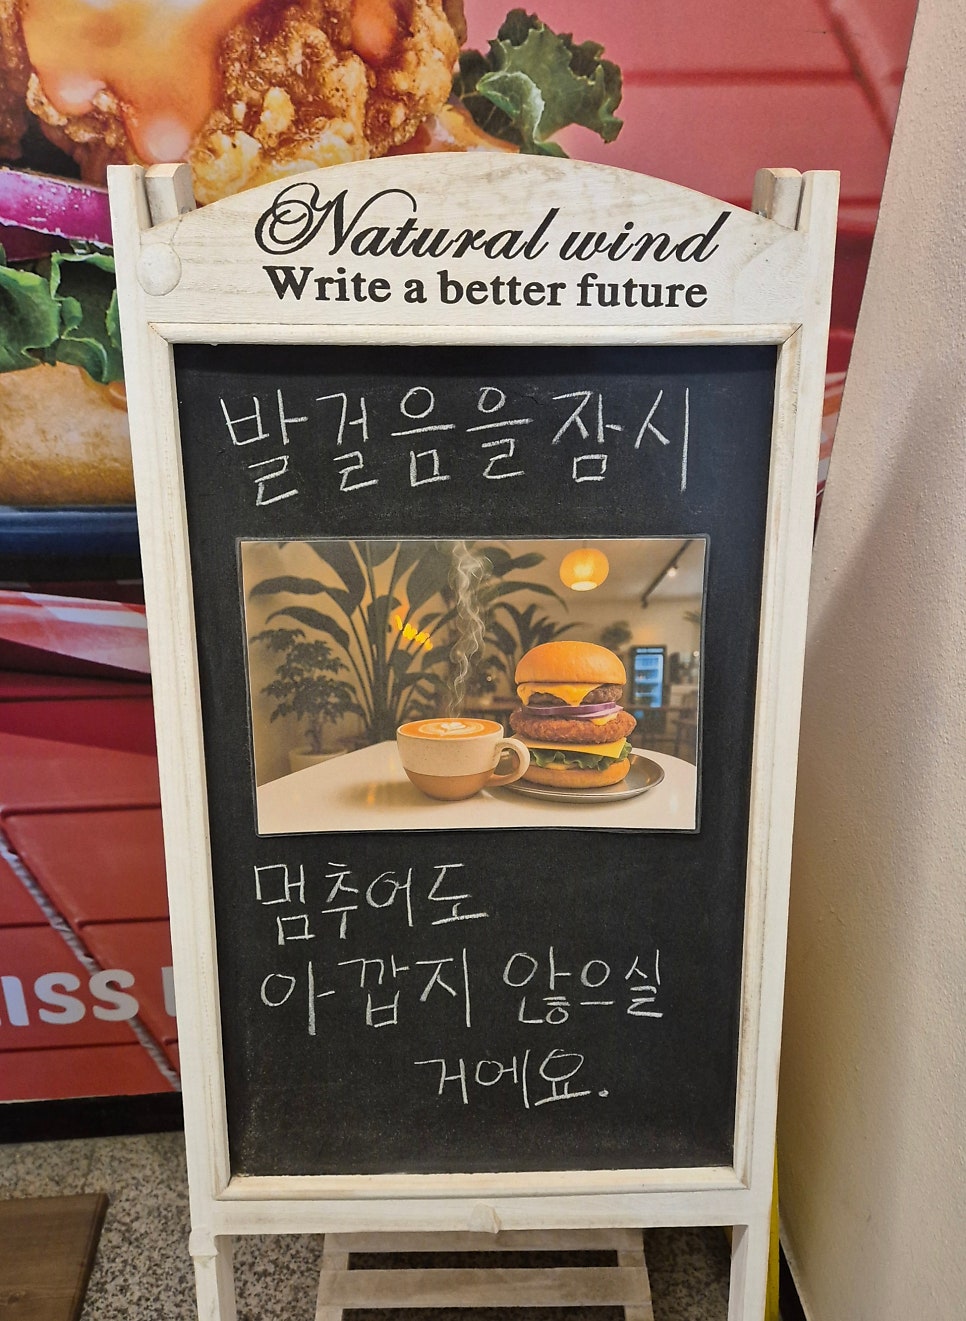 Natural wind
Write a better future
발걸음을 잠시
멈추어도
아깝지 않으실
거에요.
ISS